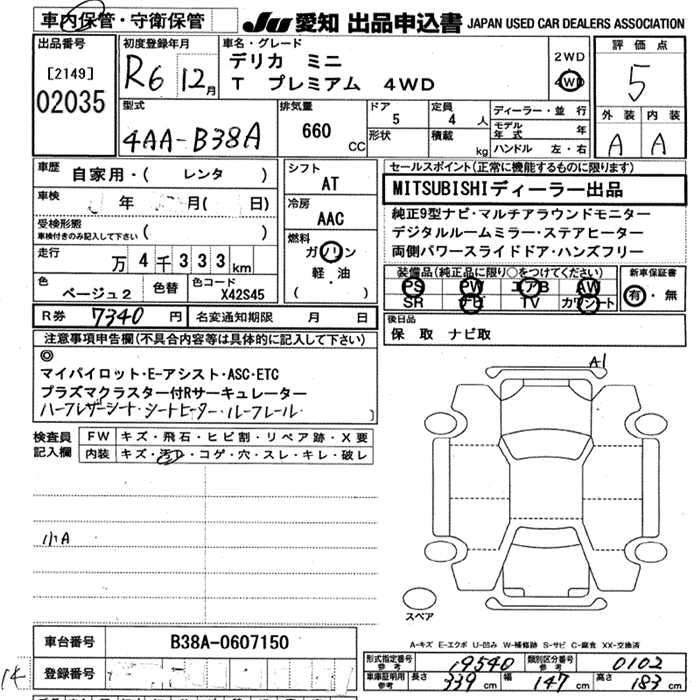 車内保管・守衛保管
JU 愛知 出品申込書 JAPAN USED CAR DEALERS ASSOCIATION
出品番号
[2149]
02035
初度登録年月
R6 12月
車名・グレード
デリカ ミニ
T プレミアム 4WD
2WD
4WD
評価点
5
外装 内装
A A
型式
4AA-B38A
排気量
660 CC
ドア
5
形状
定員
4 人
積載
kg
ディーラー・並行
モデル年式 年
ハンドル 左・右
車歴
自家用・( レンタ )
車検
年 月( 日)
受検形態
車検付きのみ記入して下さい ( )
走行
万4千333km
色
ベージュ2
色替
色コード
X42S45
シフト
AT
冷房
AAC
燃料
ガソリン
軽・油
( )
セールスポイント(正常に機能するものに限ります)
MITSUBISHIディーラー出品
純正9型ナビ・マルチアラウンドモニター
デジタルルームミラー・ステアヒーター
両側パワースライドドア・ハンズフリー
装備品(純正品に限り○をつけてください)
PS PW エアB AW
SR ナビ TV カワシート
新車保証書
有・無
R券 7340 円
名変通知期限 月 日
後日品
保 取 ナビ取
注意事項申告欄(不具合内容等は具体的に記入して下さい)
◎
マイパイロット・E-アシスト・ASC・ETC
プラズマクラスター付Rサーキュレーター
ハーフレザーシート シートヒーター・ルーフレール
検査員記入欄
FW キズ・飛石・ヒビ割・リペア跡・X要
内装 キズ・汚れ・コゲ・穴・スレ・キレ・破レ
小A
A1
スペア
A-キズ E-エクボ U-凹み W-補修跡 S-サビ C-腐食 XX-交換済
車台番号
B38A-0607150
登録番号
形式指定番号 参考 19540
類別区分番号 参考 0102
車庫証明用 参考 長さ 339 cm 幅 147 cm 高さ 183 cm